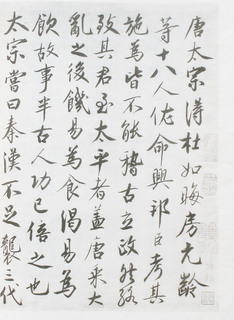 唐太宗得杜如晦房元齡
等十八人佐命興邦臣考其
施為皆不能稽古立政然終
致其君至太平者蓋唐承大
亂之後饑易為食渴易為
飲故事半古人功已倍之也
太宗嘗曰秦漢不足襲三代